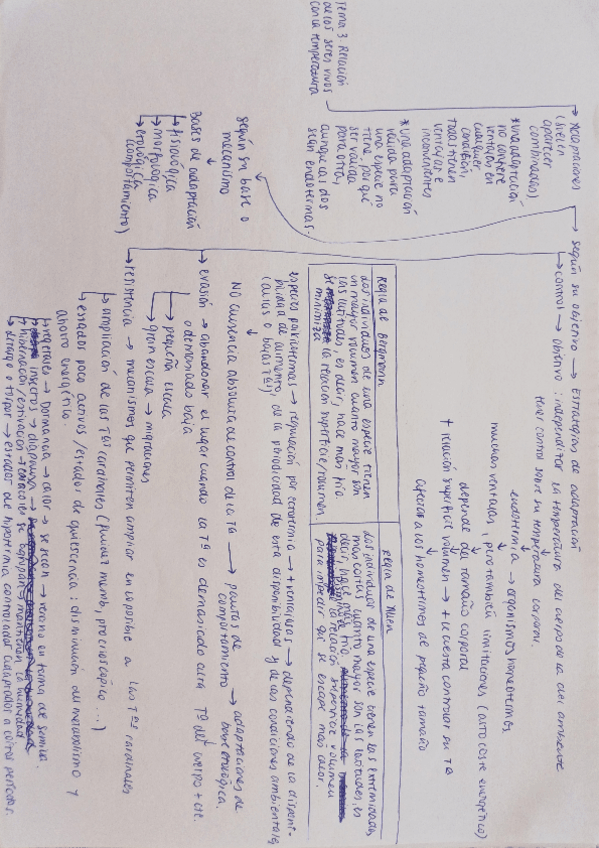 Tema 3. Relación
de los seres vivos
con la temperatura
Adaptaciones
(suelen
aparecer
combinadas)
*una adaptación
no confiere
ventajas en
cualquier
condición,
todas tienen
ventajas e
inconvenientes
*una adaptación
válida para
una especie no
tiene por qué
ser válida
para otra,
aunque las dos
sean endotermas.
según su objetivo → Estrategias de adaptación
control → objetivo: independizar la temperatura del cuerpo de la del ambiente
tener control sobre su temperatura corporal.
endotermia → organismos homeotermos
muchas ventajas, pero también limitaciones (alto coste energético)
depende del tamaño corporal
↑ relación superficie volumen → + le cuesta controlar su Tª
afecta a los homeotermos de pequeño tamaño
Regla de Bergmann
dos individuos de una especie tienen
un mayor volumen cuanto mayor son
las latitudes, es decir, hace más frío
se la relación superficie/volumen
minimiza
Regla de Allen
dos individuos de una especie tienen las extremidades
más cortas cuanto mayor son las latitudes, es
decir, hace más frío.
la relación superficie volumen
para impedir que se escape más calor.
especies poiquilotermas → regulación por ectotermia → + ventajosas → dependiendo de la disponi-
bilidad de alimento, de la periodicidad de esta disponibilidad y de las condiciones ambientales
(altas o bajas Tª)
NO ausencia absoluta de control de la Tª → pautas de comportamiento → adaptaciones de base etológica.
según su base o
mecanismo
Bases de adaptación
→ fisiológica
→ morfológica
→ etológica
(comportamiento)
evasión → abandonar el lugar cuando la Tª es demasiado alta Tª del cuerpo + cte.
o demasiado baja
→ pequeña escala
→ gran escala → migraciones
resistencia → mecanismos que permiten ampliar en lo posible a las Tªs cardinales
→ ampliación de las Tªs cardinales
→ estados poco activos/estados de quiescencia: disminución del metabolismo y
ahorro energético.
→ vegetales → Dormancia → calor → se secan → verano en forma de semilla.
→ insectos → diapausa
→ hibernación/estivación → mantienen la humedad
→ letargo o torpor → estados de hipotermia controlados adaptados a cortos períodos.